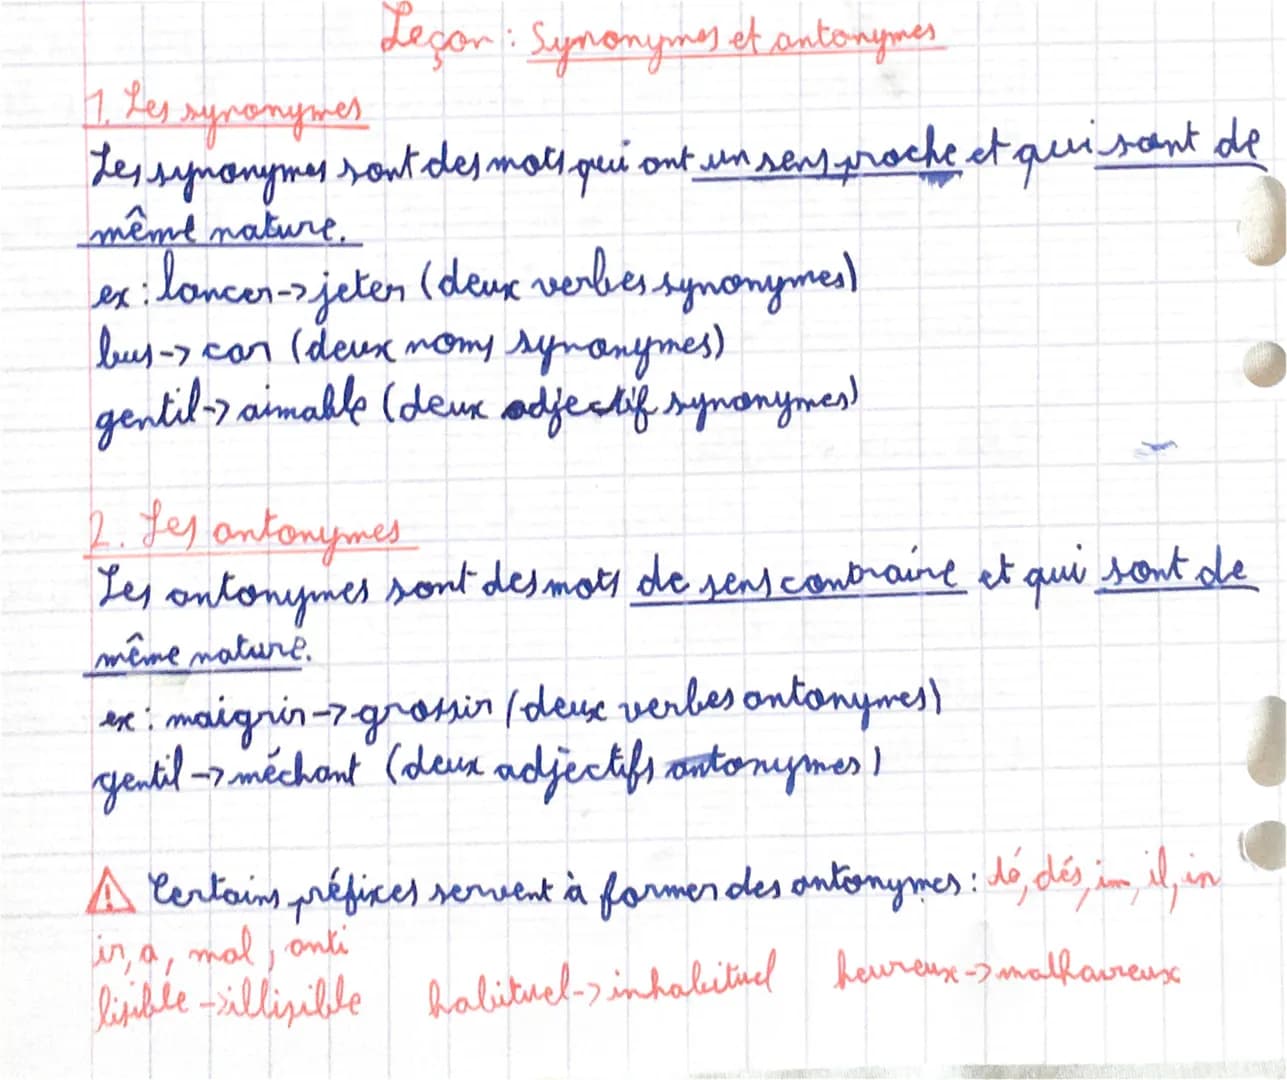 Leçon : Synonymes et antonymes
1. Les synonymes
Les synonymes sont des mots qui ont un sens proche et qui sont de
même nature.
ex : lancer -> jeter (deux verbes synonymes)
bus -> car (deux noms synonymes)
gentil -> aimable (deux adjectif synonymes)
2. Les antonymes
Les antonymes sont des mots de sens contraire et qui sont de
même nature.
ex : maigrir -> grossir (deux verbes antonymes)
gentil -> méchant (deux adjectifs antonymes)
⚠ Certains préfixes servent à former des antonymes : dé, dés, im, il, in
ir, a, mal, anti
lisible -> illisible habituel -> inhabituel heureux -> malheureux